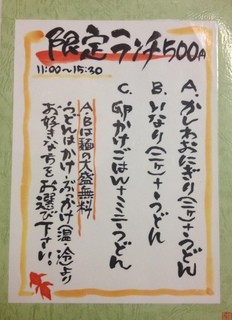 限定ランチ500円
11:00〜15:30
A.かしわおにぎり(二ヶ)+うどん
B.いなり(二ヶ)+うどん
C.卵かけごはん+ミニうどん
A・Bは麺の大盛無料
うどんはかけ・ぶっかけ(温・冷)より
お好きな方をお選び下さい。